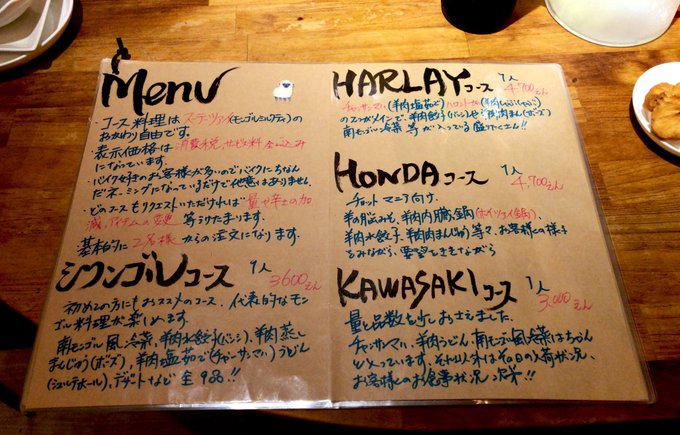 Menu
・コース料理はスーテーツァイ(モンゴルミルクティ)の
おかわり自由です。
・表示価格は消費税、サービス料全て込み
になっています。
・バイク好きのお客様が多いのでバイクにちなん
だネーミングになっているだけで他意はありません。
・どのコースもリクエストいただければ量や辛さの加
減、アイテムの変更等うけたまわります。
・基本的に2名様からの注文になります。
シリンゴルコース 1人
3600えん
初めての方にもおススメのコース。代表的なモン
ゴル料理が楽しめます。
南モンゴル風冷菜、羊肉水餃子(バンシ)、羊肉蒸し
まんじゅう(ボーズ)、羊肉塩茹で(チャンサンマハ)うどん
デザートなど全9品!!
HARLAYコース 1人
4,700えん
チャンサンマハ(羊肉塩茹で)
の2つがメインで、羊肉餃子(バンシ)や羊肉まん(ボーズ)
南モンゴル冷菜等が入っている盛りだくさん!!
HONDAコース 1人
4,700えん
チョットマニア向け。
羊の脳みそ、羊肉内臓鍋(ホイツァイ鍋)、
羊肉水餃子、羊肉まんじゅう等で、お客様の様子
をみながら、要望をききながら
KAWASAKIコース 1人
3,000えん
量も品数も少しおさえました。
チャンサンマハ、羊肉うどん、南モンゴル風冷菜はちゃん
と入っています。それ以外はその日の入荷状況、
お客様のお食事状況次第!!